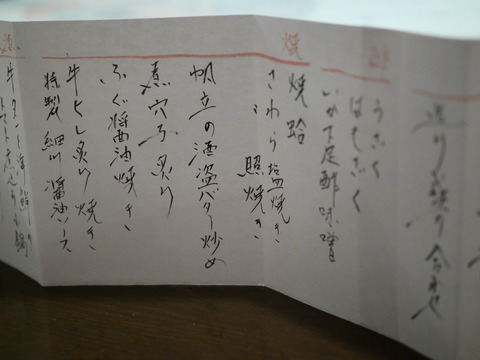 造り盛り合わせ
酢
うざく
はもざく
いか下足酢味噌
焼
焼蛤
さわら 塩焼き
照焼き
帆立の酒盗バター炒め
煮穴子炙り
ふぐ醤油焼き
牛ヒレ炙り焼き
特製 細川 醤油ソース
煮